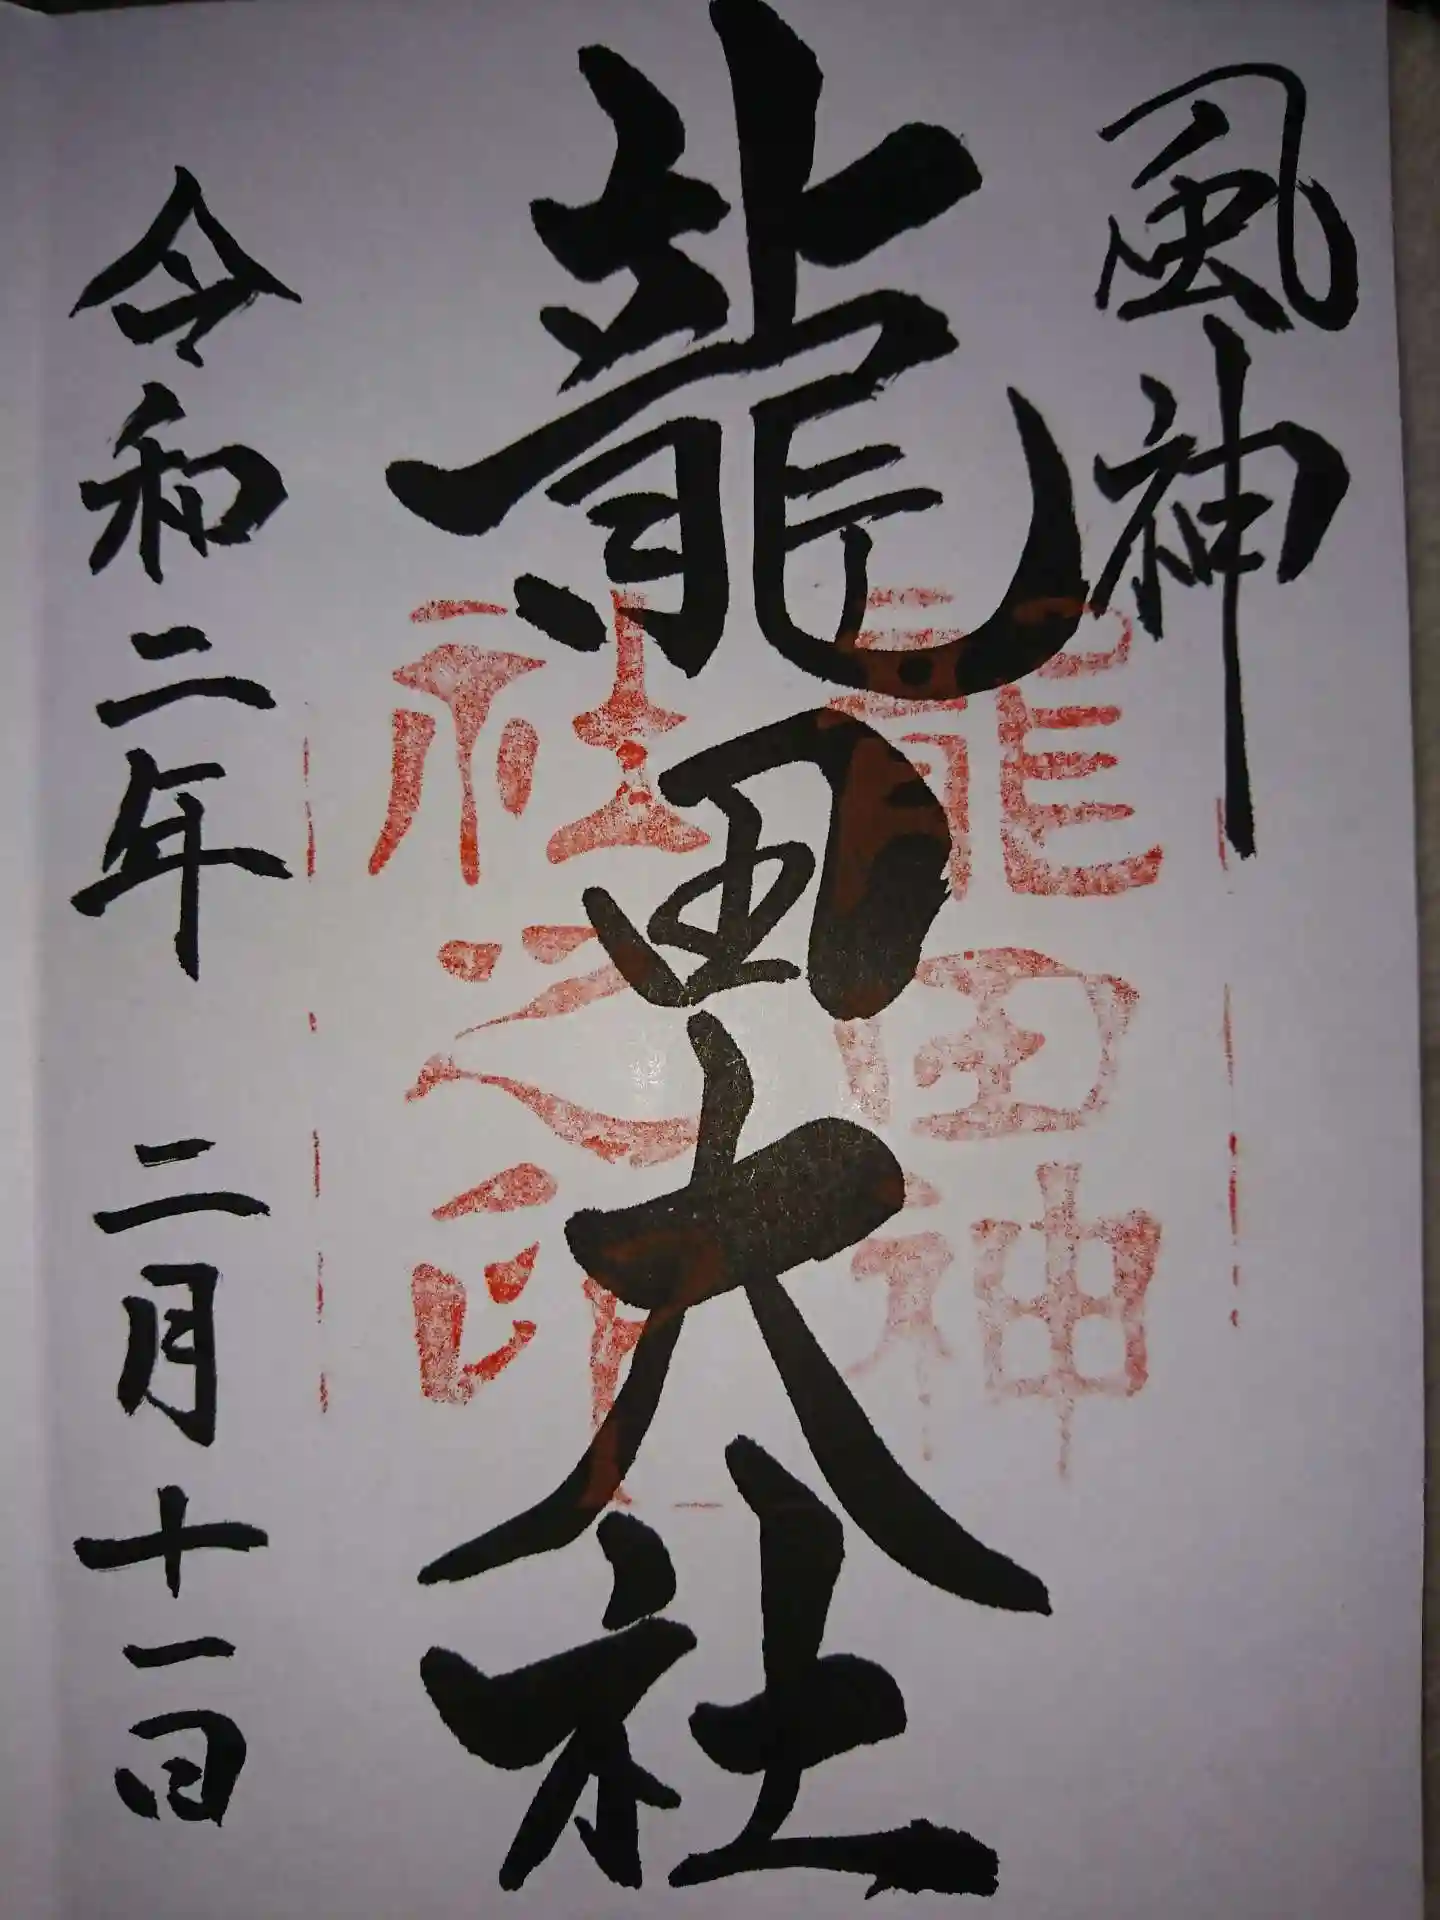 風神
龍田大社
令和二年 二月十一日
龍田神
社之印